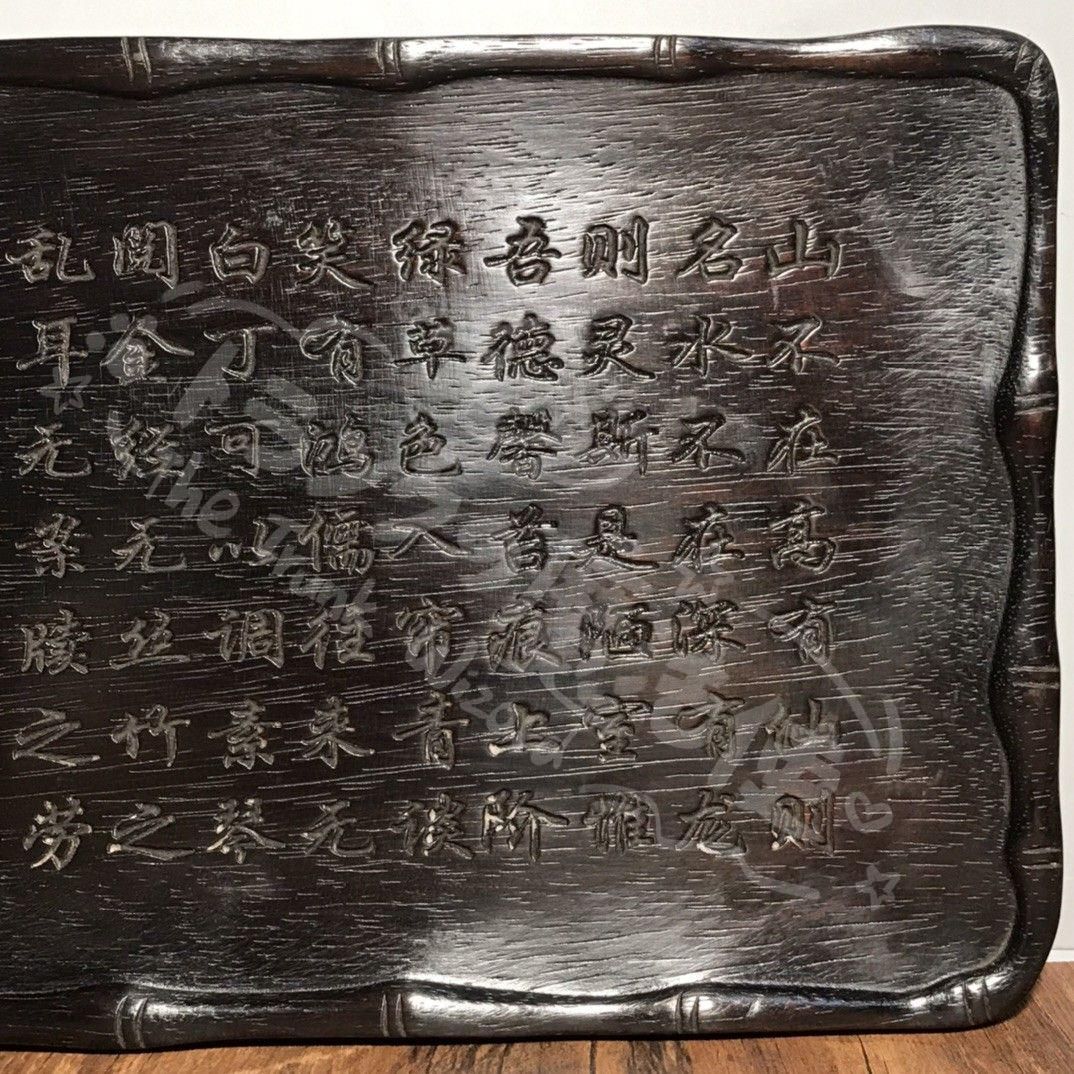 山不在高有仙则
名水不在深有龙
则灵斯是陋室惟
吾德馨苔痕上阶
绿草色入帘青谈
笑有鸿儒往来无
白丁可以调素琴
阅金经无丝竹之
乱耳无案牍之劳
The Junk Wizard